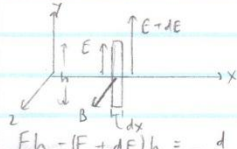 y
E
E + dE
h
x
z
B
dx
Eh - (E + dE)h = d